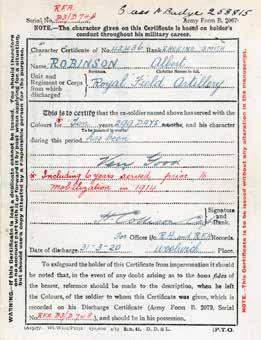 Class A Badge 253815
RFA
Serial No. B3/D708 Army Form B. 2067.
NOTE.—The character given on this Certificate is based on the holder's
conduct throughout his military career.
Character Certificate of No. Rank SHOEING SMITH
ROBINSON Albert
Surname
Unit and
Regiment or Corps
from which
discharged
Royal Field Artillery
This is to certify that the ex-soldier named above has served with the
Colours for Two years 299 DAYS and his character
during this period has been
Very Good
* Including 6 years served prior to
mobilization in 1914.
Signature
and
Rank.
For Officer i/c R.H. and R.F.A. Records
Date of discharge 31-3-20 Woolwich
To safeguard the holder of this Certificate from impersonation it should
be noted that, in the event of any doubt arising as to the bona fides of the
bearer, reference should be made to the description, when he left
the Colours, of the soldier to whom this Certificate was given, which is
recorded on his Discharge Certificate (Army Form B. 2079, Serial
No. B3/D708), and should be in his possession.
P.T.O.
WARNING.—If this Certificate is lost a duplicate cannot be issued. You should therefore
on no account part with it or forward it by post when applying for a situation,
but should use a copy attested by a responsible person for the purpose.
NOTE. This Certificate is to be issued without any alteration in the manuscript.